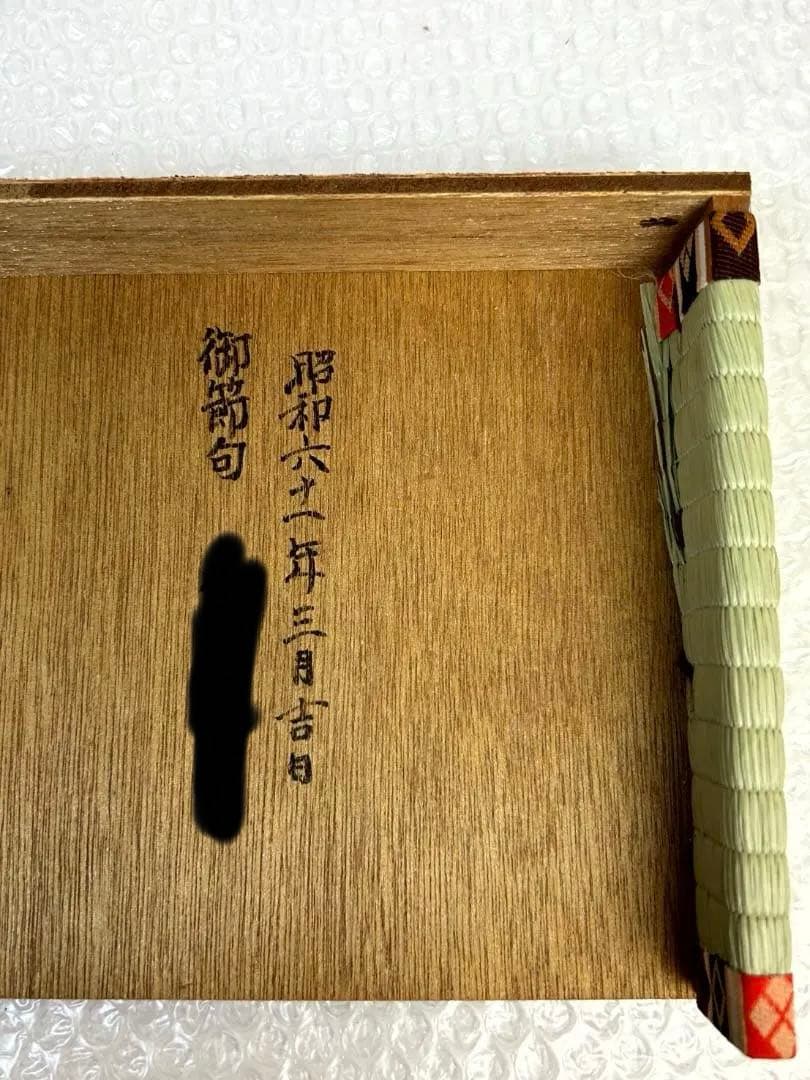 昭和六十一年三月吉日
御節句